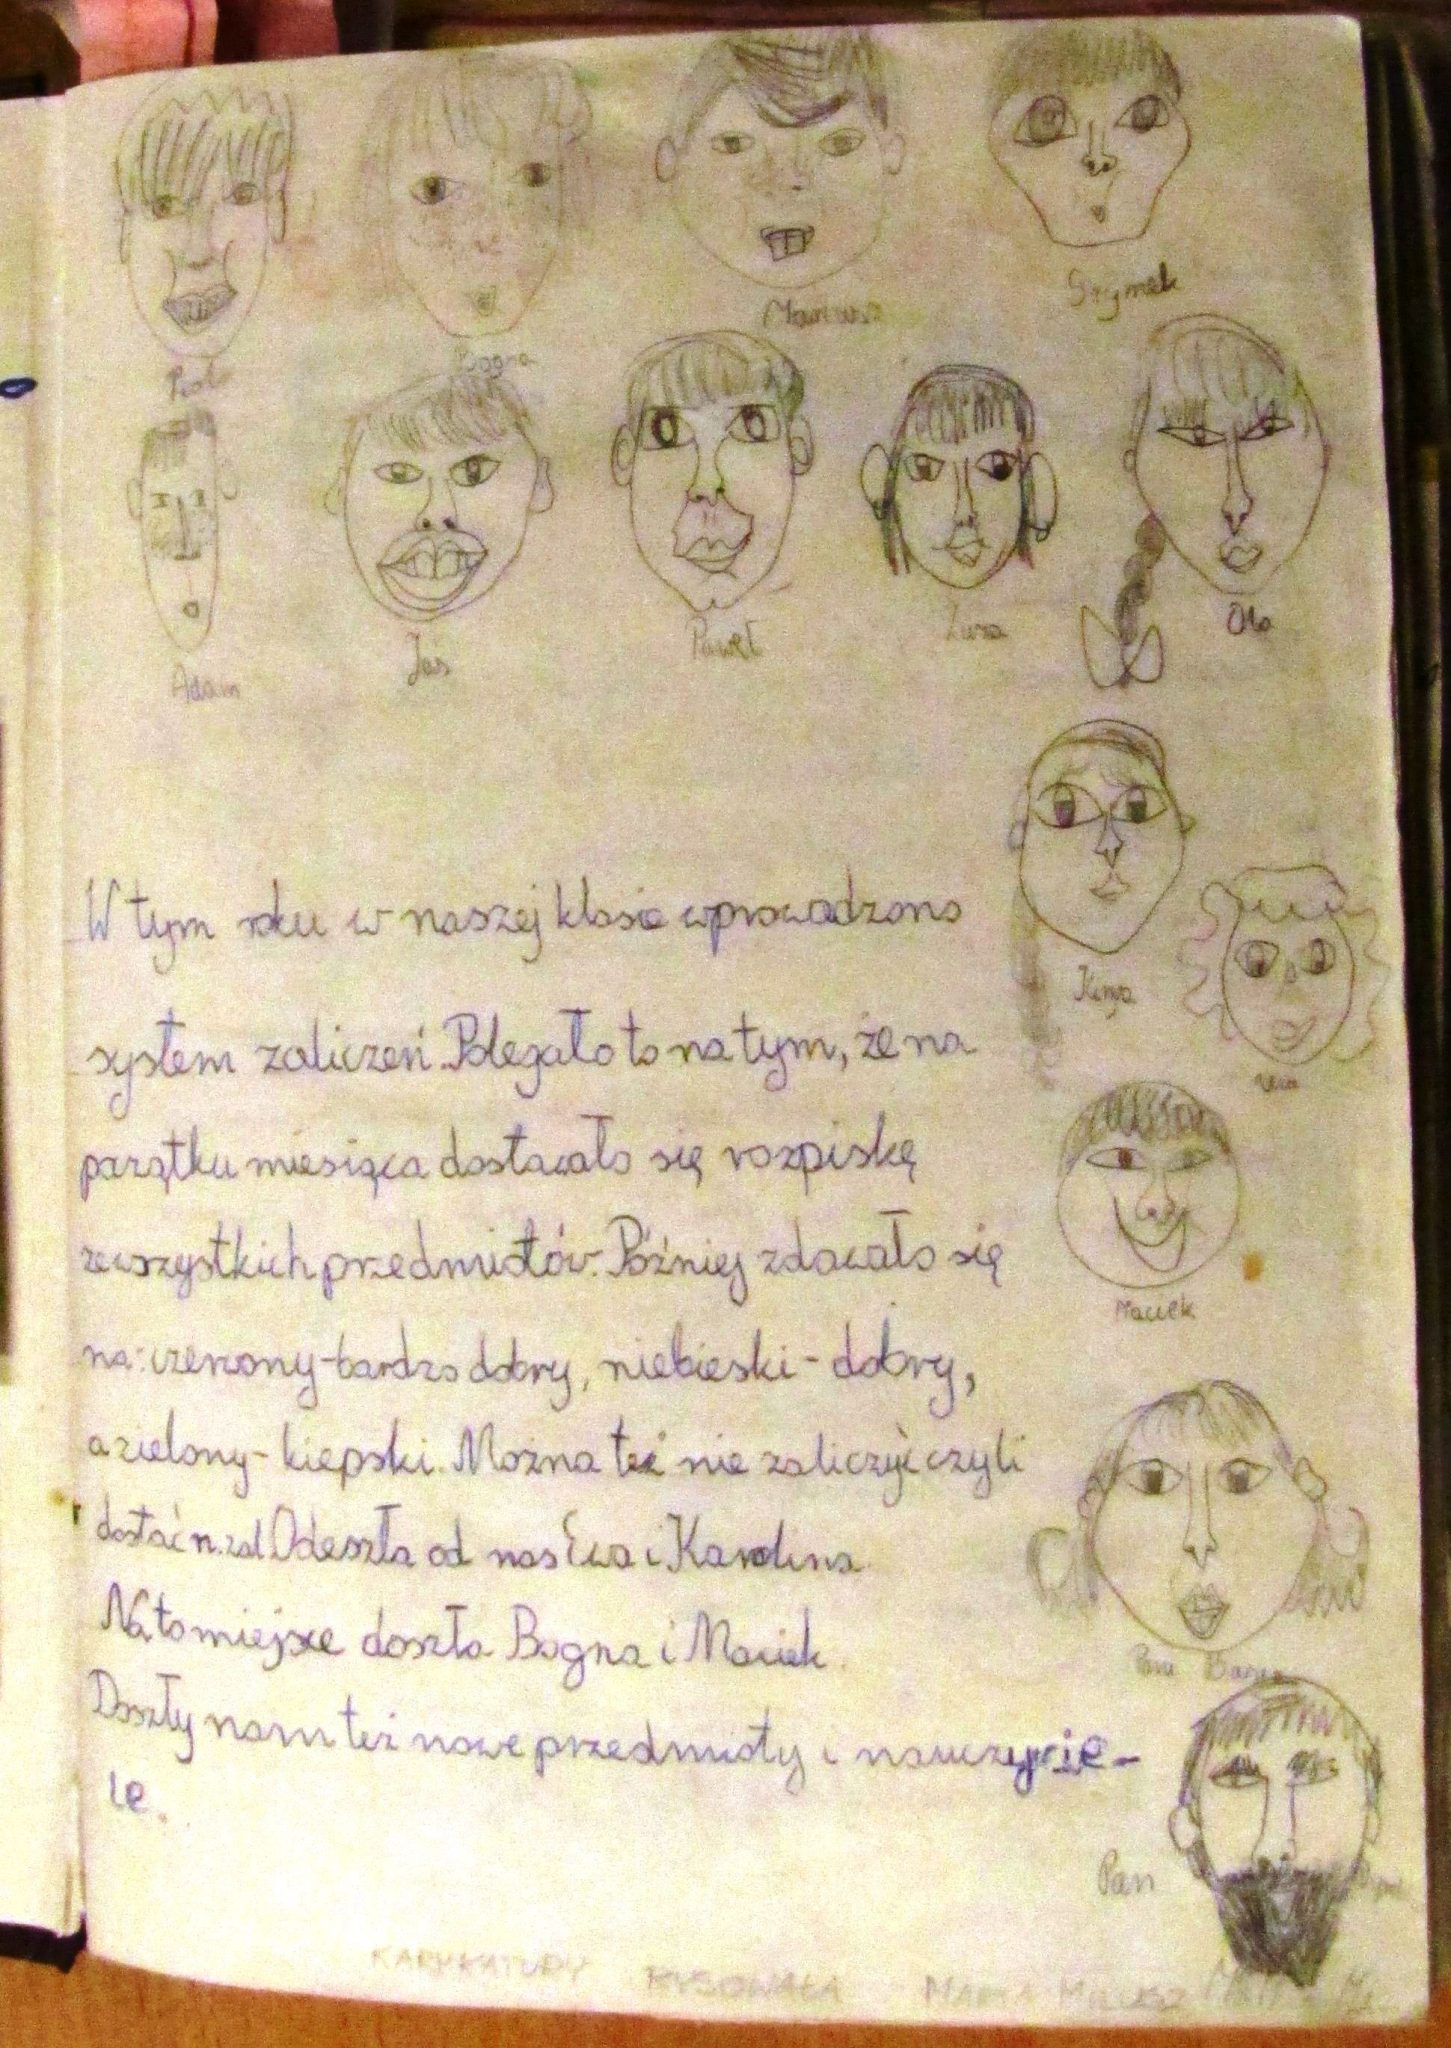 Bogna
Mariusz
Szymek
Adam
Jaś
Paweł
Zuza
Ola
Kinga
Maciek
W tym roku w naszej klasie wprowadzono
system zaliczeń. Polegało to na tym, że na
początku miesiąca dostawało się rozpiskę
ze wszystkich przedmiotów. Później zdawało się
na: czerwony - bardzo dobry, niebieski - dobry,
a zielony - kiepski. Można też nie zaliczyć czyli
dostać n.zal Odeszła od nas Ewa i Karolina.
Na to miejsce doszła Bogna i Maciek.
Doszły nam też nowe przedmioty i nauczycie-
le.
Pan
KARYKATURY RYSOWAŁA MARTA